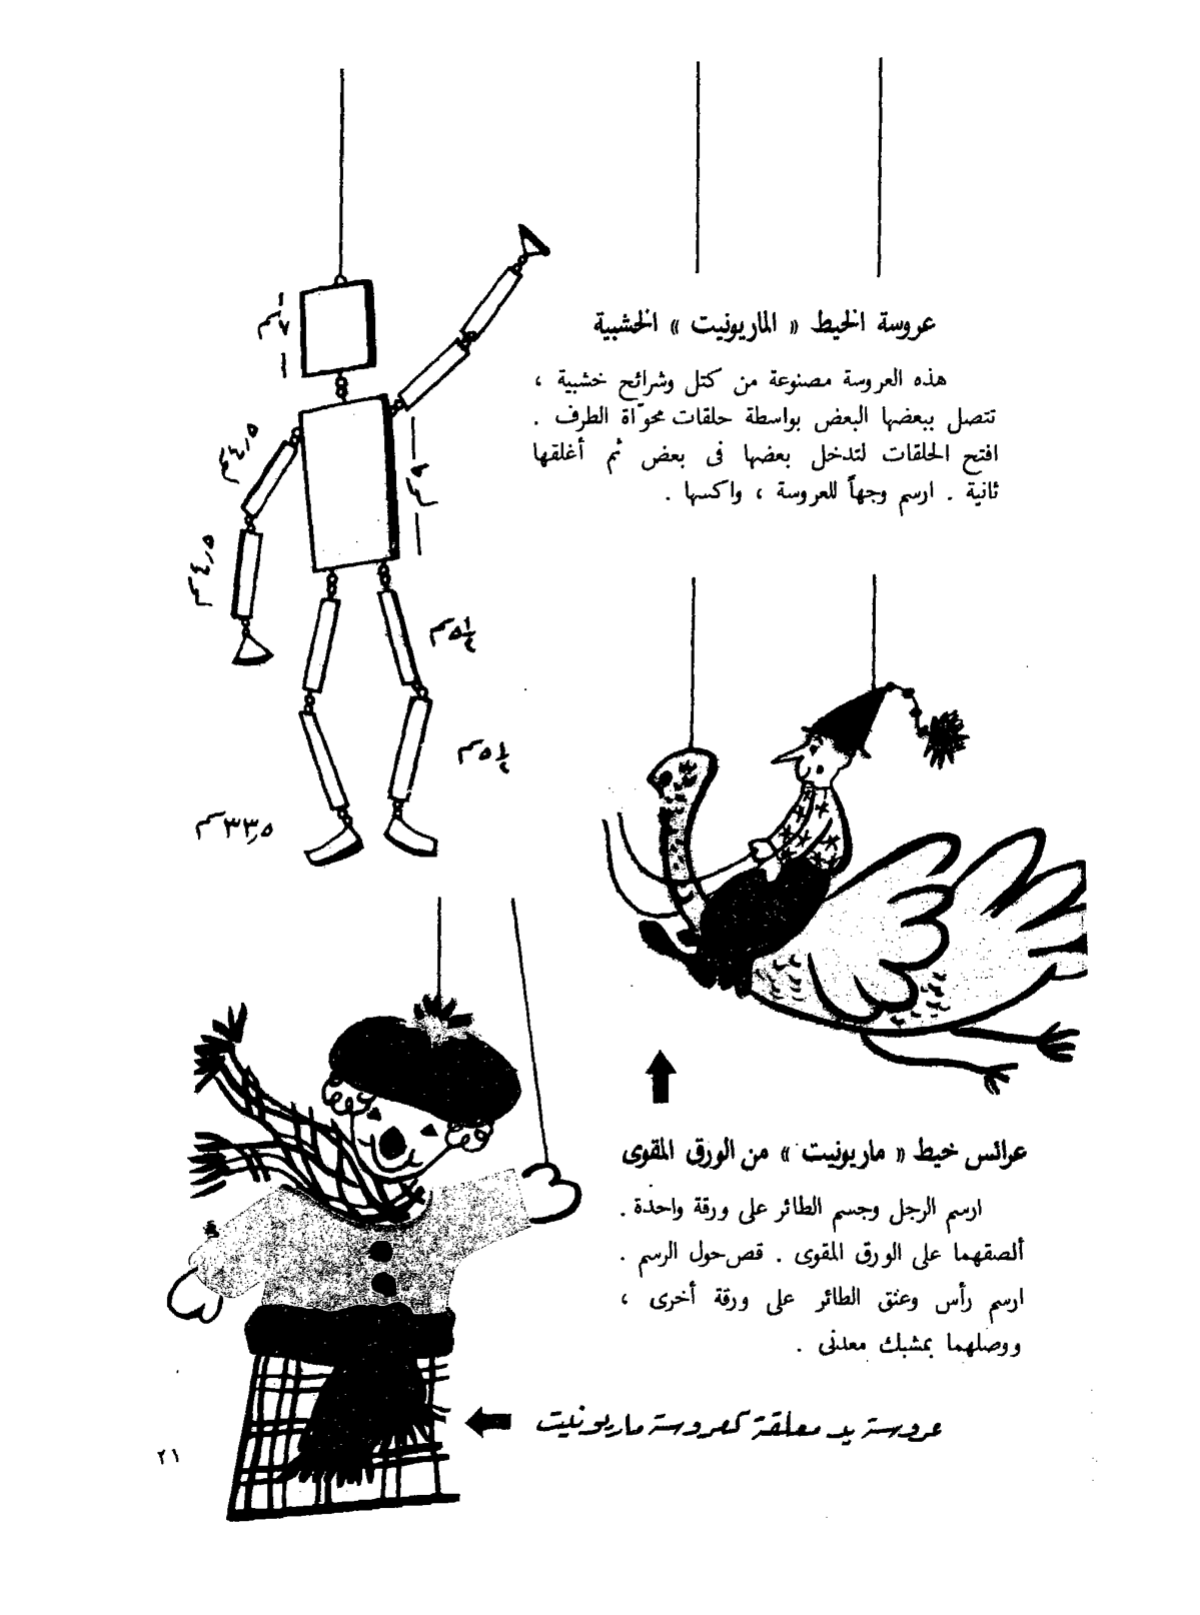 عروسة الخيط « الماريونيت » الخشبية
هذه العروسة مصنوعة من كتل وشرائح خشبية ،
تتصل ببعضها البعض بواسطة حلقات محوّاة الطرف .
افتح الحلقات لتدخل بعضها فى بعض ثم أغلقها
ثانية . ارسم وجهاً للعروسة ، واكسها .
٧سم
٤٫٥سم
٩سم
٤٫٥سم
٥١/٤سم
٥١/٤سم
٣٣٫٥سم
عرائس خيط « ماريونيت » من الورق المقوى
ارسم الرجل وجسم الطائر على ورقة واحدة .
ألصقهما على الورق المقوى . قص حول الرسم .
ارسم رأس وعنق الطائر على ورقة أخرى ،
ووصلهما بمشبك معدنى .
عروسة يد معلقة كعروسة ماريونيت
٢١